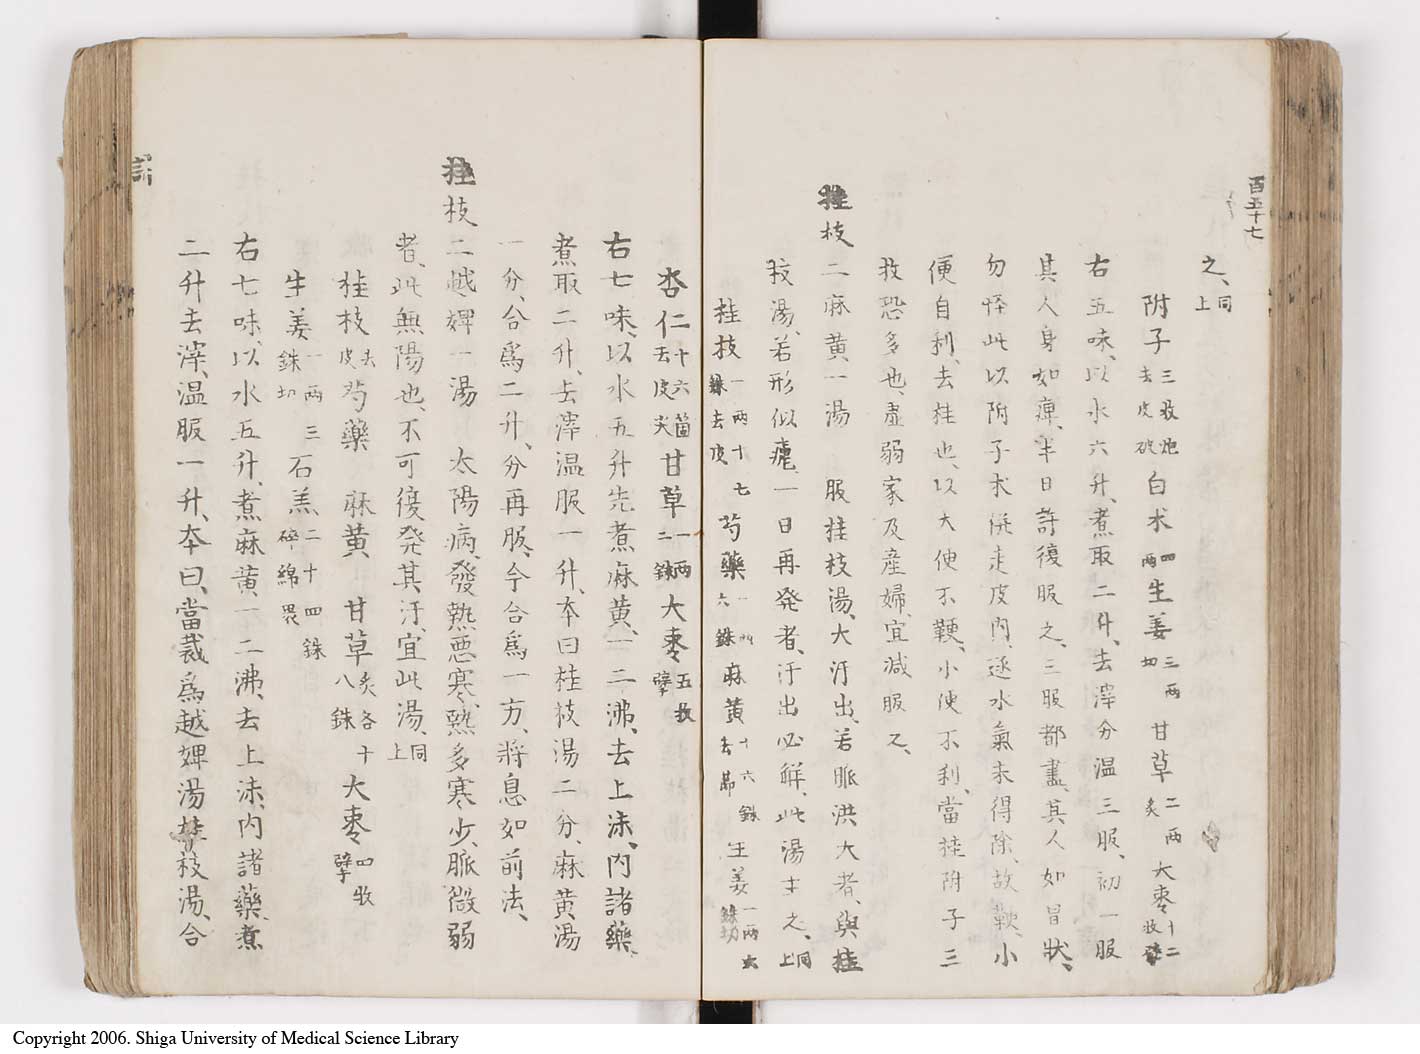 百五十七
之、同上
附子三枚炮去皮破白朮四兩生姜三兩切甘草二兩炙大棗十二枚擘
右五味、以水六升、煮取二升、去滓分温三服、初一服
其人身如痺、半日許復服之、三服都盡、其人如冒狀、
勿怪此以附子朮併走皮内、逐水氣未得除、故、小
便自利、去桂也、以大便不鞕、小便不利、當桂附子三
枚恐多也、虚弱家及産婦、宜減服之、
桂枝二麻黄一湯 服桂枝湯、大汗出、若脈洪大者、與桂
枝湯、若形似瘧、一日再発者、汗出必解、此湯主之、同上
桂枝一兩十七銖去皮芍藥一兩六銖麻黄十六銖去節王姜一兩六銖切
杏仁十六箇去皮尖甘草一兩二銖大棗五枚擘
右七味、以水五升先煮麻黄、一二沸、去上沫、内諸藥、
煮取二升、去滓温服一升、本曰桂枝湯二分、麻黄湯
一分、合爲二升、分再服、今合爲一方、將息如前法、
桂枝二越婢一湯 太陽病、發熱悪寒、熱多寒少、脈微弱
者、此無陽也、不可復発其汗、宜此湯、同上
桂枝去皮芍藥 麻黄 甘草炙各十八銖大棗四枚擘
生姜一兩三銖切石羔二十四銖碎綿畏
右七味、以水五升、煮麻黄一二沸、去上沫、内諸藥、煮
二升去滓、温服一升、本曰、當裁爲越婢湯桂枝湯、合